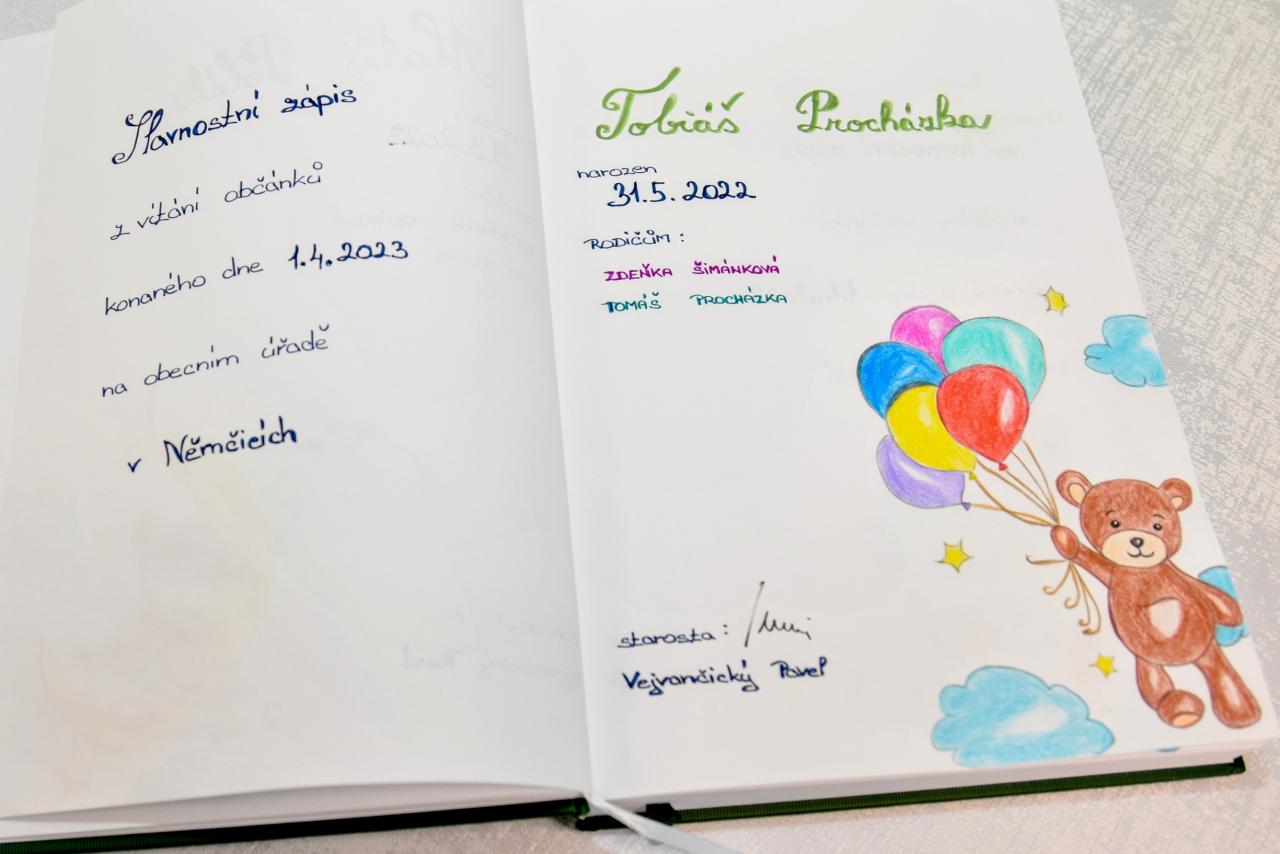 Slavnostní zápis
z vítání občánků
konaného dne 1.4.2023
na obecním úřadě
v Němčicích
Tobiáš Procházka
narozen
31.5.2022
RODIČŮM:
ZDEŇKA ŠIMÁNKOVÁ
TOMÁŠ PROCHÁZKA
starosta:
Vejvančický Pavel